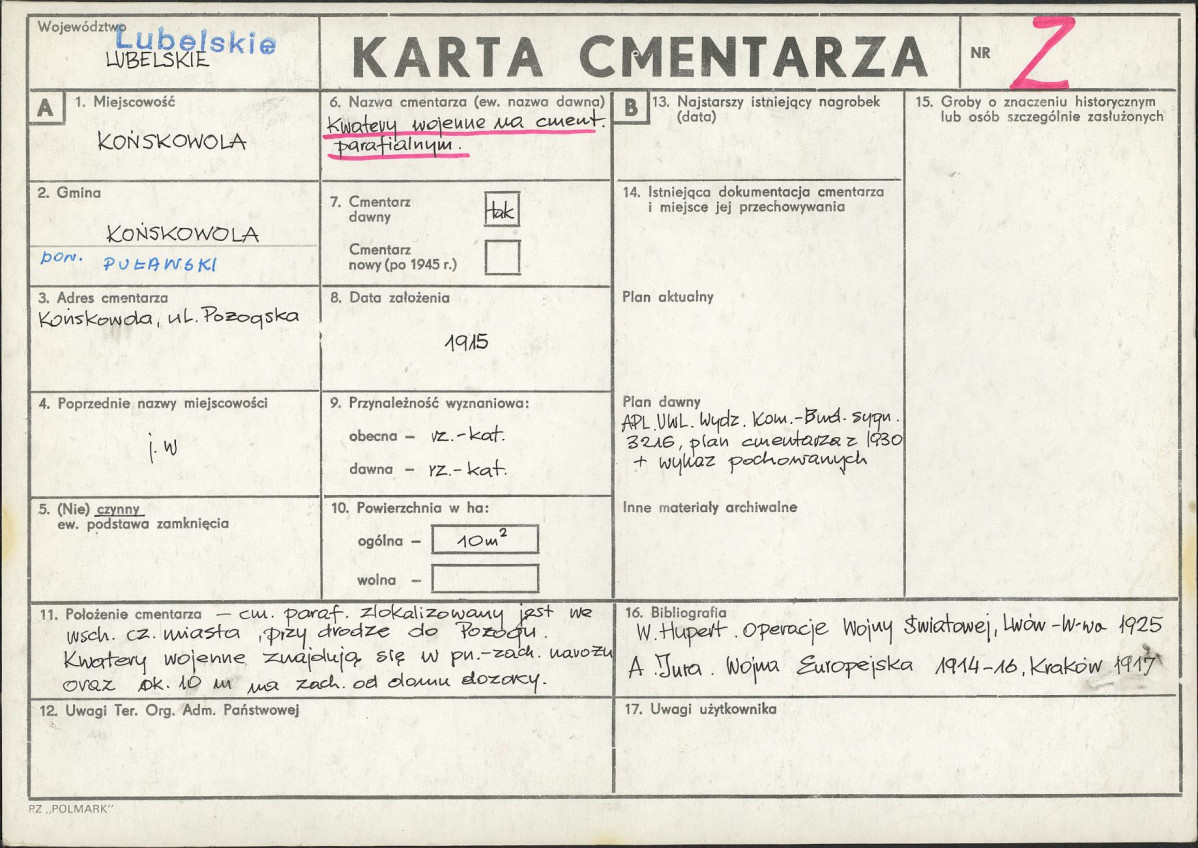 Województwo
Lubelskie
LUBELSKIE
KARTA CMENTARZA
NR Z
A
1. Miejscowość
KOŃSKOWOLA
2. Gmina
KOŃSKOWOLA
pow. PUŁAWSKI
3. Adres cmentarza
Końskowola, ul. Pożogska
4. Poprzednie nazwy miejscowości
j.w
5. (Nie) czynny
ew. podstawa zamknięcia
6. Nazwa cmentarza (ew. nazwa dawna)
Kwatery wojenne na cment.
parafialnym.
7. Cmentarz
dawny
tak
Cmentarz
nowy (po 1945 r.)
8. Data założenia
1915
9. Przynależność wyznaniowa:
obecna – rz.-kat.
dawna – rz.-kat.
10. Powierzchnia w ha:
ogólna – 10m²
wolna –
11. Położenie cmentarza – cm. paraf. zlokalizowany jest we
wsch. cz. miasta, przy drodze do Pożogu.
Kwatery wojenne znajdują się w pn.-zach. narożu
oraz ok. 10 m na zach. od domu dozorcy.
12. Uwagi Ter. Org. Adm. Państwowej
B
13. Najstarszy istniejący nagrobek
(data)
14. Istniejąca dokumentacja cmentarza
i miejsce jej przechowywania
Plan aktualny
Plan dawny
APL. UWL. Wydz. Kom.-Bud. sygn.
3216, plan cmentarza z 1930
+ wykaz pochowanych
Inne materiały archiwalne
15. Groby o znaczeniu historycznym
lub osób szczególnie zasłużonych
16. Bibliografia
W. Hupert. Operacje Wojny Światowej, Lwów-W-wa 1925
A. Jura. Wojna Europejska 1914-16, Kraków 1917
17. Uwagi użytkownika
PZ „POLMARK”